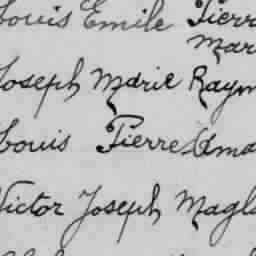 Louis Emile Pierr
Mar
Joseph Marie Raym
Louis Pierre Ama
Victor Joseph Magl